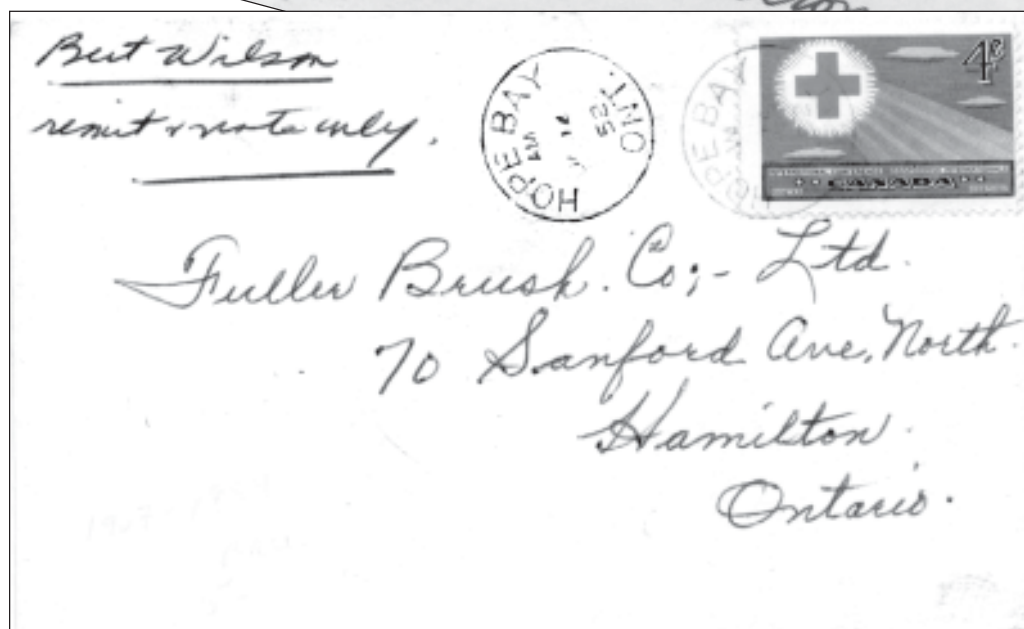 Bert Wilson
remit & note only.
HOPE BAY
ONT.
AM
52
HOPE BAY
4¢
CANADA
Fuller Brush. Co;- Ltd.
70 Sanford Ave. North.
Hamilton.
Ontario.